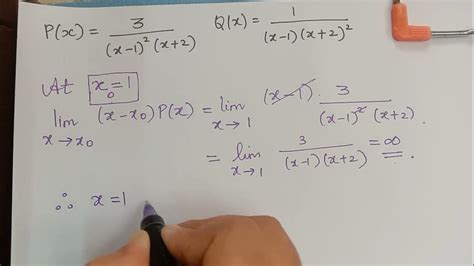 P(x) = 3/((x-1)²(x+2)) Q(x) = 1/((x-1)(x+2)²)
At x₀=1
lim x→x₀ (x-x₀)P(x) = lim x→1 (x-1) · 3/((x-1)²(x+2))
= lim x→1 3/((x-1)(x+2)) = ∞.
∴ x=1